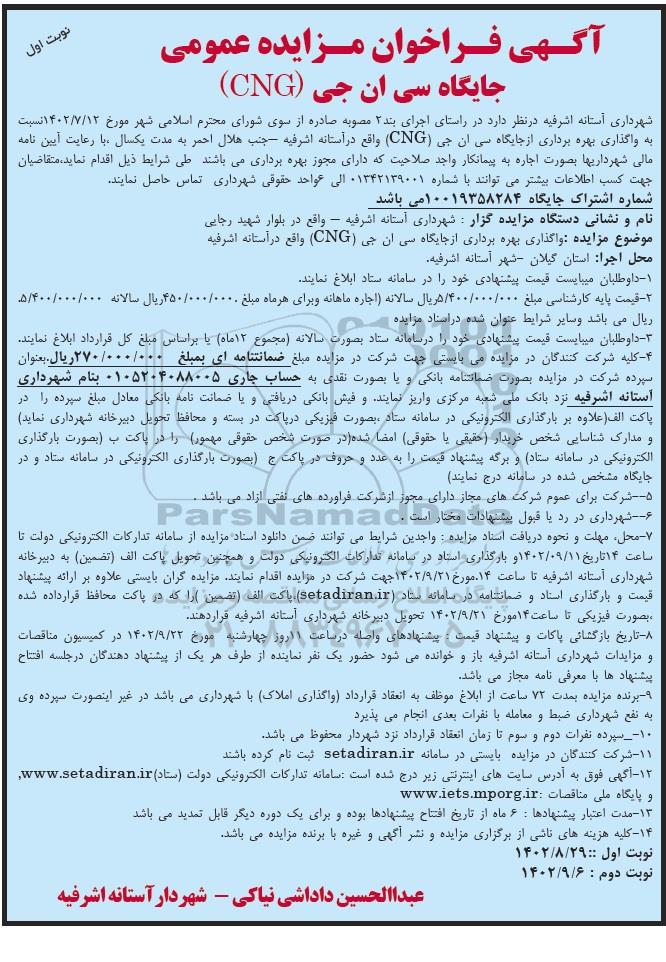 نوبت اول
آگـهی فـراخوان مـزایده عمومی
جایگاه سی ان جی (CNG)
شهرداری آستانه اشرفیه درنظر دارد در راستای اجرای بند۲ مصوبه صادره از سوی شورای محترم اسلامی شهر مورخ ۱۴۰۲/۷/۱۲نسبت
به واگذاری بهره برداری ازجایگاه سی ان جی (CNG) واقع درآستانه اشرفیه –جنب هلال احمر به مدت یکسال ،با رعایت آیین نامه
مالی شهرداریها بصورت اجاره به پیمانکار واجد صلاحیت که دارای مجوز بهره برداری می باشند طی شرایط ذیل اقدام نماید،متقاضیان
جهت کسب اطلاعات بیشتر می توانند با شماره ۰۱۳۴۲۱۳۹۰۰۱ الی ۶واحد حقوقی شهرداری تماس حاصل نمایند.
شماره اشتراک جایگاه ۱۰۰۱۹۳۵۸۲۸۴می باشد
نام و نشانی دستگاه مزایده گزار : شهرداری آستانه اشرفیه – واقع در بلوار شهید رجایی
موضوع مزایده :واگذاری بهره برداری ازجایگاه سی ان جی (CNG) واقع درآستانه اشرفیه
محل اجرا: استان گیلان –شهر آستانه اشرفیه.
۱–داوطلبان میبایست قیمت پیشنهادی خود را در سامانه ستاد ابلاغ نمایند.
۲–قیمت پایه کارشناسی مبلغ ۵/۴۰۰/۰۰۰/۰۰۰ریال سالانه (اجاره ماهانه وبرای هرماه مبلغ ۴۵۰/۰۰۰/۰۰۰.ریال سالانه ۵/۴۰۰/۰۰۰/۰۰۰.
ریال می باشد وسایر شرایط عنوان شده دراسناد مزایده
۳–داوطلبان میبایست قیمت پیشنهادی خود را درسامانه ستاد بصورت سالانه (مجموع ۱۲ماه) یا براساس مبلغ کل قرارداد ابلاغ نمایند.
۴–کلیه شرکت کنندگان در مزایده می بایستی جهت شرکت در مزایده مبلغ ضمانتنامه ای بمبلغ ۲۷۰/۰۰۰/۰۰۰ریال.بعنوان
سپرده شرکت در مزایده بصورت ضمانتنامه بانکی و یا بصورت نقدی به حساب جاری ۰۱۰۵۲۰۴۰۸۸۰۰۵ بنام شهرداری
آستانه اشرفیه نزد بانک ملی شعبه مرکزی واریز نمایند. و فیش بانکی دریافتی و یا ضمانت نامه بانکی معادل مبلغ سپرده را در
پاکت الف(علاوه بر بارگذاری الکترونیکی در سامانه ستاد ،بصورت فیزیکی درپاکت در بسته و محافظ تحویل دبیرخانه شهرداری نماید)
و مدارک شناسایی شخص خریدار (حقیقی یا حقوقی) امضا شده(در صورت شخص حقوقی مهمور) را در پاکت ب (بصورت بارگذاری
الکترونیکی در سامانه ستاد) و برگه پیشنهاد قیمت را به عدد و حروف در پاکت ج (بصورت بارگذاری الکترونیکی در سامانه ستاد و در
جایگاه مشخص شده در سامانه درج نمایند)
۵––شرکت برای عموم شرکت های مجاز دارای مجوز ازشرکت فراورده های نفتی آزاد می باشد .
۶––شهرداری در رد یا قبول پیشنهادات مختار است .
۷–محل، مهلت و نحوه دریافت اسناد مزایده : واجدین شرایط می توانند ضمن دانلود اسناد مزایده از سامانه تدارکات الکترونیکی دولت تا
ساعت ۱۴تاریخ۱۴۰۲/۰۹/۱۱و بارگذاری اسناد در سامانه تدارکات الکترونیکی دولت و همچنین تحویل پاکت الف (تضمین) به دبیرخانه
شهرداری آستانه اشرفیه تا ساعت ۱۴،مورخ۱۴۰۲/۹/۲۱جهت شرکت در مزایده اقدام نمایند. مزایده گران بایستی علاوه بر ارائه پیشنهاد
قیمت و بارگذاری اسناد و ضمانتنامه در سامانه ستاد (setadiran.ir)،پاکت الف (تضمین )را که در پاکت محافظ قرارداده شده
،بصورت فیزیکی تا ساعت۱۴مورخ ۱۴۰۲/۹/۲۱ تحویل دبیرخانه شهرداری آستانه اشرفیه قراردهند.
۸–تاریخ بازگشائی پاکات و پیشنهاد قیمت : پیشنهادهای واصله درساعت ۱۱روز چهارشنبه مورخ ۱۴۰۲/۹/۲۲ در کمیسیون مناقصات
و مزایدات شهرداری آستانه اشرفیه باز و خوانده می شود حضور یک نفر نماینده از طرف هر یک از پیشنهاد دهندگان درجلسه افتتاح
پیشنهاد ها با معرفی نامه مجاز می باشد.
۹–برنده مزایده بمدت ۷۲ ساعت از ابلاغ موظف به انعقاد قرارداد (واگذاری املاک) با شهرداری می باشد در غیر اینصورت سپرده وی
به نفع شهرداری ضبط و معامله با نفرات بعدی انجام می پذیرد
۱۰–_سپرده نفرات دوم و سوم تا زمان انعقاد قرارداد نزد شهردار محفوظ می باشد.
۱۱–شرکت کنندگان در مزایده بایستی در سامانه setadiran.ir ثبت نام کرده باشند
۱۲–آگهی فوق به آدرس سایت های اینترنتی زیر درج شده است :سامانه تدارکات الکترونیکی دولت (ستاد)www.setadiran.ir,
و پایگاه ملی مناقصات :www.iets.mporg.ir
۱۳–مدت اعتبار پیشنهادها : ۶ ماه از تاریخ افتتاح پیشنهادها بوده و برای یک دوره دیگر قابل تمدید می باشد
۱۴–کلیه هزینه های ناشی از برگزاری مزایده و نشر آگهی و غیره با برنده مزایده می باشد.
نوبت اول ::۱۴۰۲/۸/۲۹
نوبت دوم : ۱۴۰۲/۹/۶
عبداالحسین داداشی نیاکی – شهردار آستانه اشرفیه
ParsNamadData